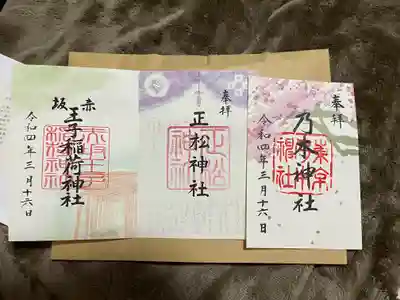 奉拝
乃木神社
令和四年三月十六日
奉拝
正松神社
赤坂
王子稲荷神社
令和四年三月十六日